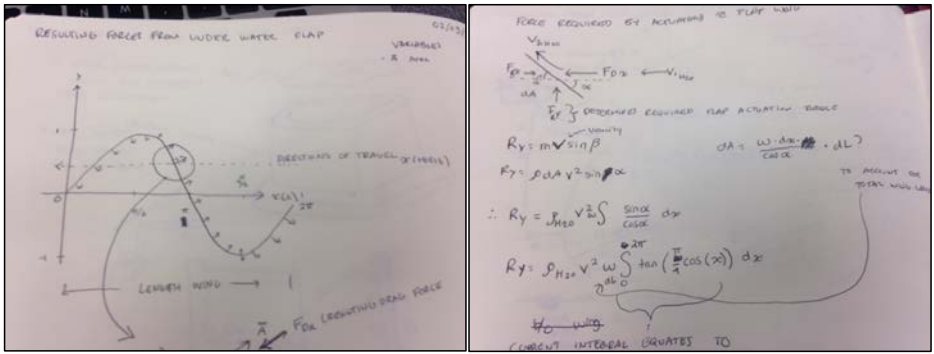 RESULTING FORCES FROM UNDER WATER FLAP
VARIABLES
DIRECTIONS OF TRAVEL
0
π/2
π
2π
-1
LENGTH WING
Ā
FDx (RESULTING DRAG FORCE
FORCE REQUIRED BY ACTUATORS TO FLAP WING
FDx
dA
α
DETERMINES REQUIRED FLAP ACTUATION TORQUE
Ry = ṁ V sin β
dA = w·dx / cos α · dL?
Ry = ρ dA V² sin α
TO ACCOUNT FOR
TOTAL WING
∴ Ry = ρH20 V² w ∫ sin α / cos α dx
Ry = ρH20 V² w ∫ 0 2π tan (π/4 cos(x)) dx
dL
CURRENT INTEGRAL EQUATES TO